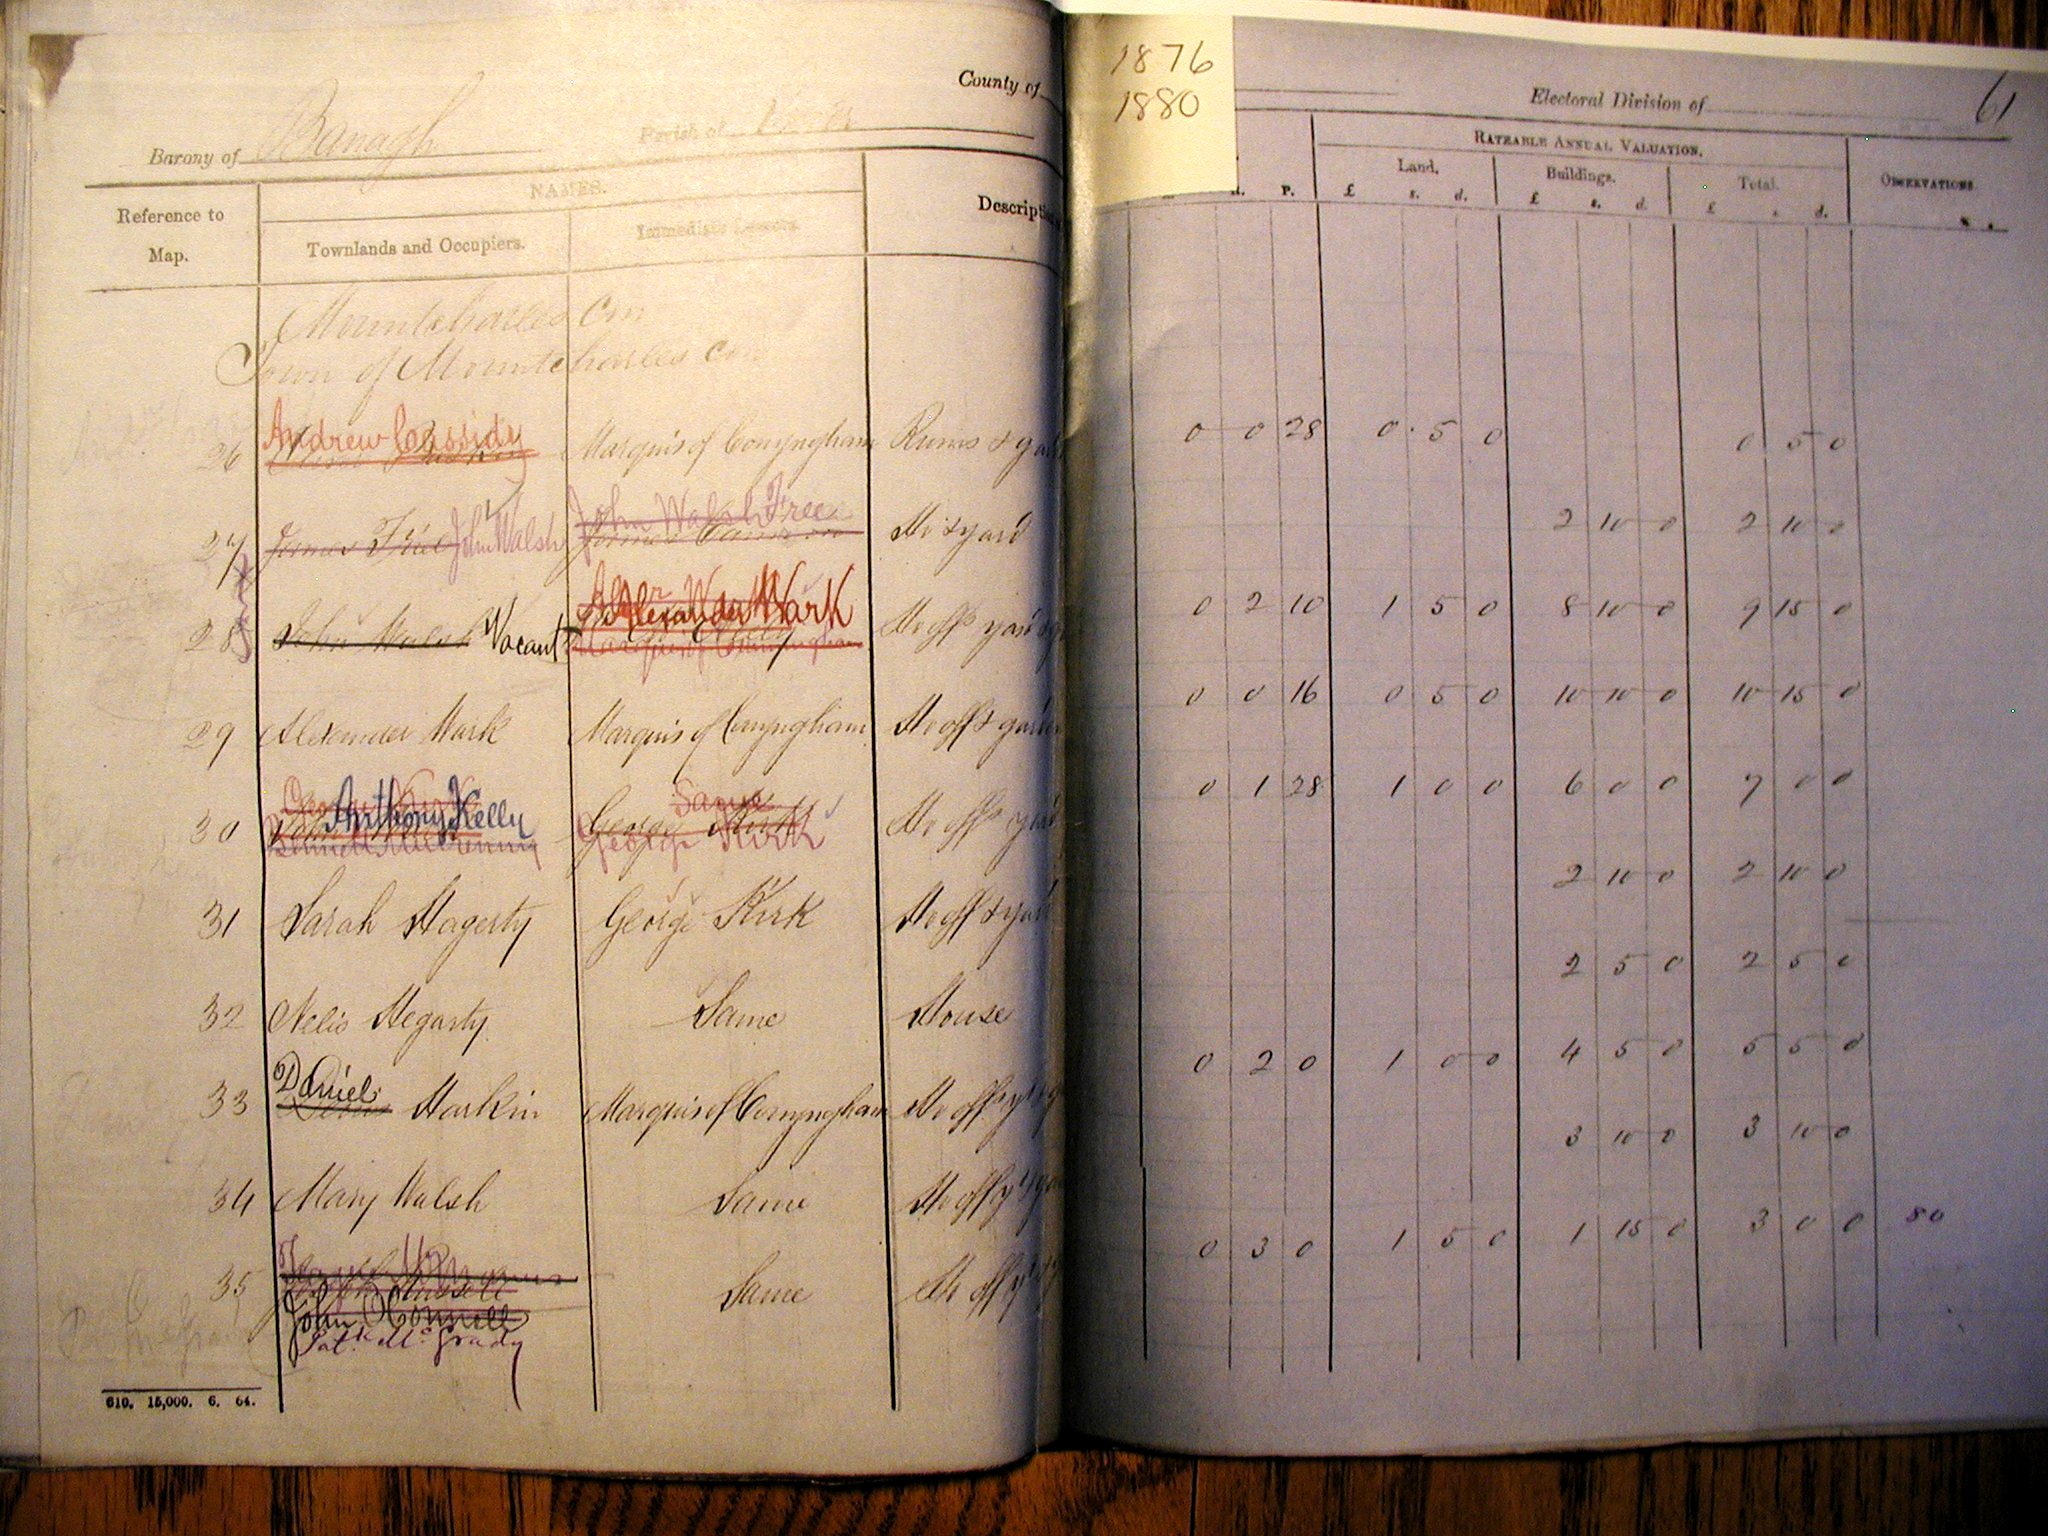 County of
1876
1880
Electoral Division of
61
Barony of Banagh Parish of
Reference to Map.
NAMES.
Townlands and Occupiers.
Immediate Lessors.
Descript
R. P.
RATEABLE ANNUAL VALUATION.
Land.
£ s. d.
Buildings.
£ s. d.
Total.
£ s. d.
OBSERVATIONS.
Mountcharles Con
Town of Mountcharles Con
Andrew Cassidy
26 Marquis of Conyngham Ruins & gard 0 0 28 0 5 0 0 5 0
John Walsh Free
27 James Friel John Walsh James Cameron Ho & yard 2 10 0 2 10 0
Alexander Wark
28 John Walsh Vacant Marquis of Conyngham Ho offs yard & g 0 2 10 1 5 0 8 10 0 9 15 0
29 Alexander Wark Marquis of Conyngham Ho offs & garden 0 0 16 0 5 0 10 10 0 10 15 0
Same
30 Anthony Kelly George Kirk Ho offs yard 0 1 28 1 0 0 6 0 0 7 0 0
George Kirk
31 Sarah Hagerty George Kirk Ho off & yard 2 10 0 2 10 0
32 Nelis Hegarty Same House 2 5 0 2 5 0
Daniel
33 Harkin Marquis of Conyngham Ho off 0 2 0 1 0 0 4 5 0 5 5 0
34 Mary Walsh Same Ho off 3 10 0 3 10 0
35 Same Ho off 0 3 0 1 5 0 1 15 0 3 0 0 80
John O'Connell
Patk. McGrady
610. 15,000. 6. 64.